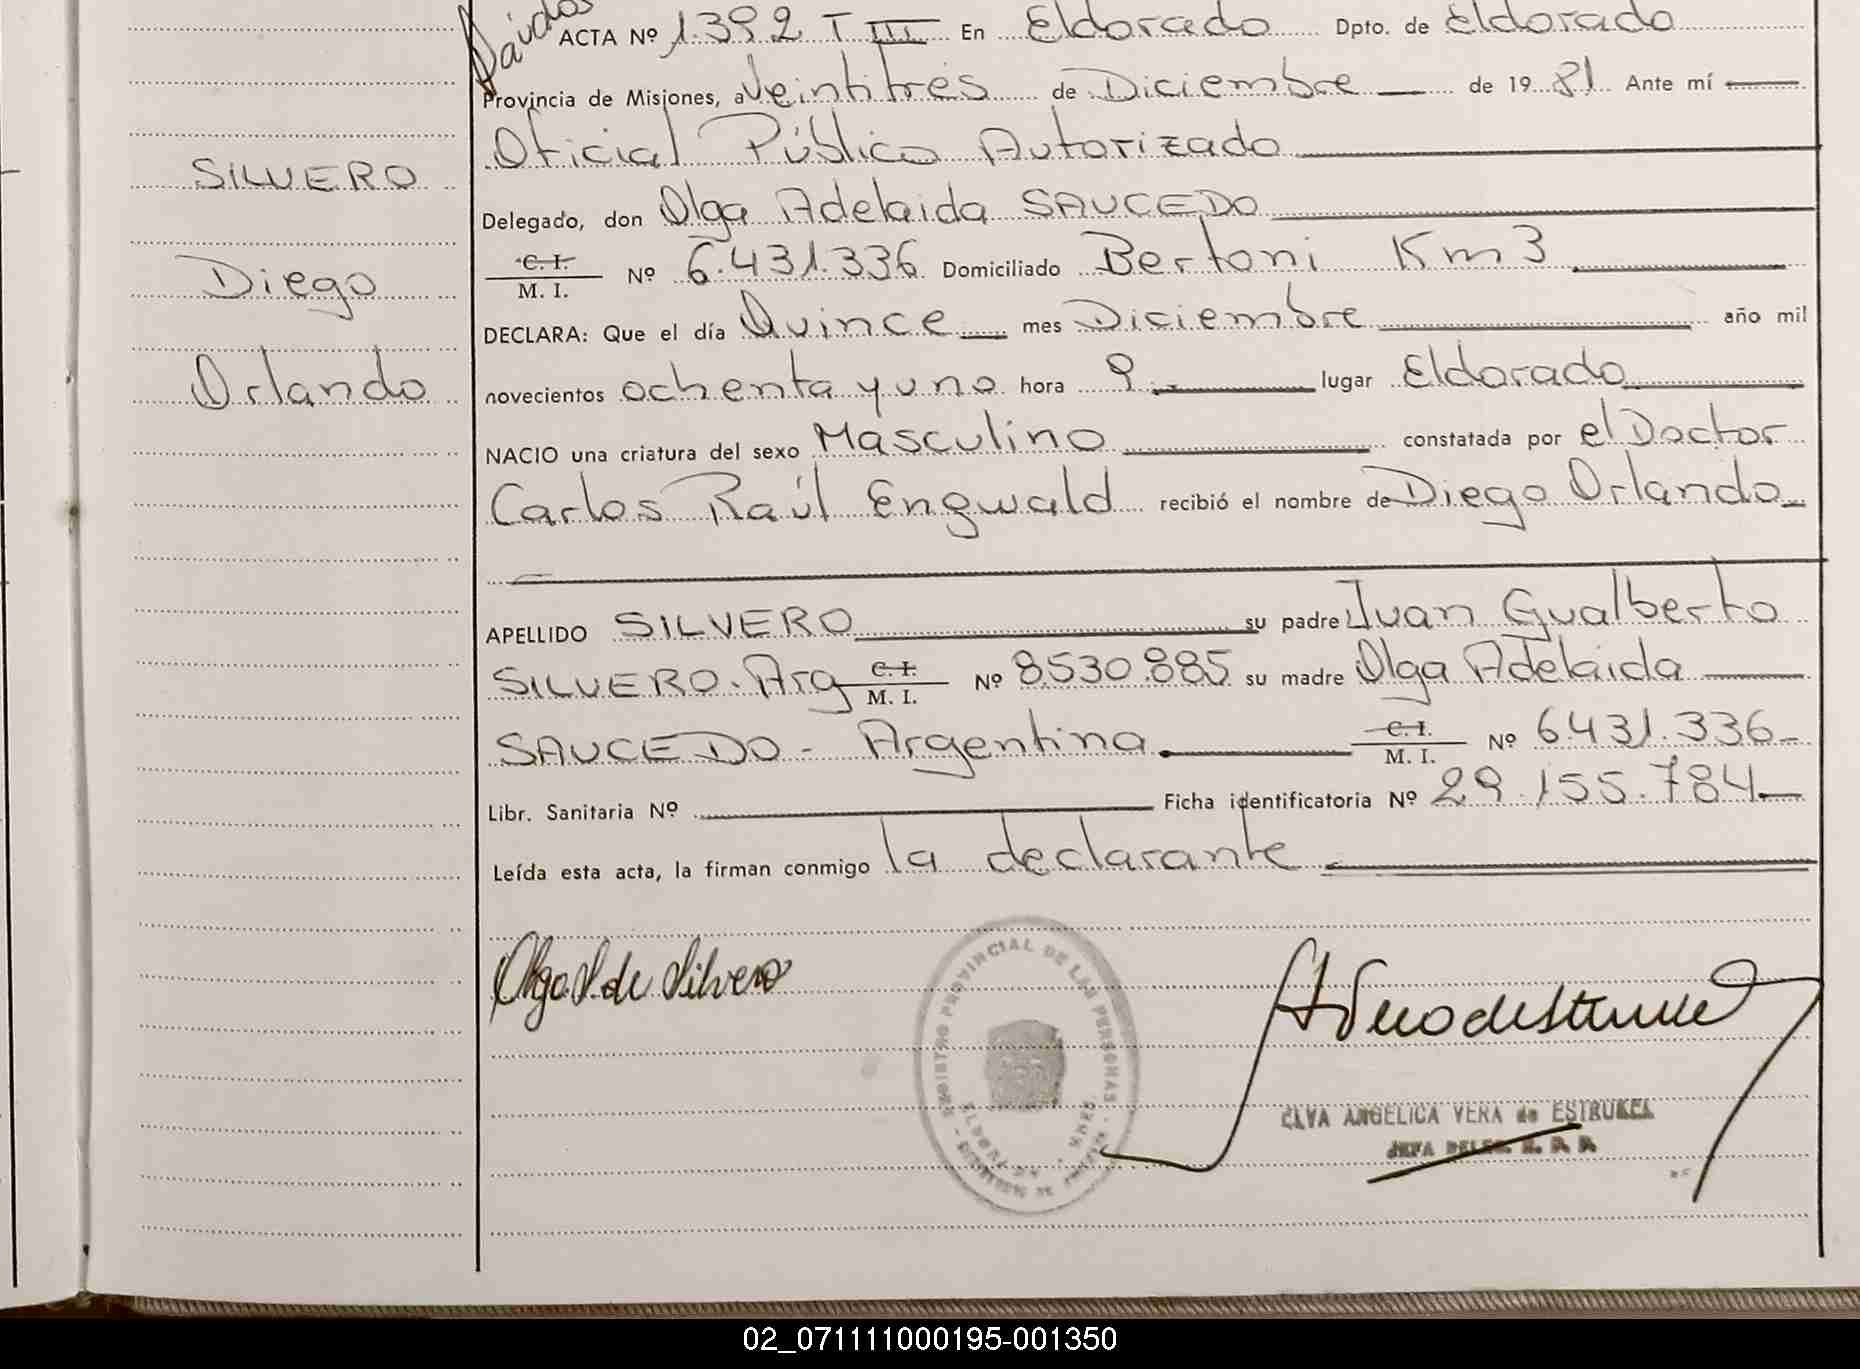 ACTA Nº 1.392 T III En Eldorado Dpto. de Eldorado
Provincia de Misiones, a Veintitrés de Diciembre de 1981 Ante mí
Oficial Público Autorizado
SILVERO
Delegado, don Olga Adelaida SAUCEDO
C. I. M. I. Nº 6.431.336 Domiciliado Bertoni Km 3
Diego
DECLARA: Que el día Quince mes Diciembre año mil
novecientos ochenta y uno hora 9.- lugar Eldorado
Orlando
NACIO una criatura del sexo Masculino constatada por el Doctor
Carlos Raúl Engwald recibió el nombre de Diego Orlando
APELLIDO SILVERO su padre Juan Gualberto
SILVERO. Arg C. I. M. I. Nº 8.530.885 su madre Olga Adelaida
SAUCEDO - Argentina C. I. M. I. Nº 6431.336-
Libr. Sanitaria Nº Ficha identificatoria Nº 29.155.784
Leída esta acta, la firman conmigo la declarante
Olga S. de Silvero
REGISTRO PROVINCIAL DE LAS PERSONAS
ELVA ANGELICA VERA de ESTRUKEL
JEFA DELEG. R. P. P.
02_071111000195-001350